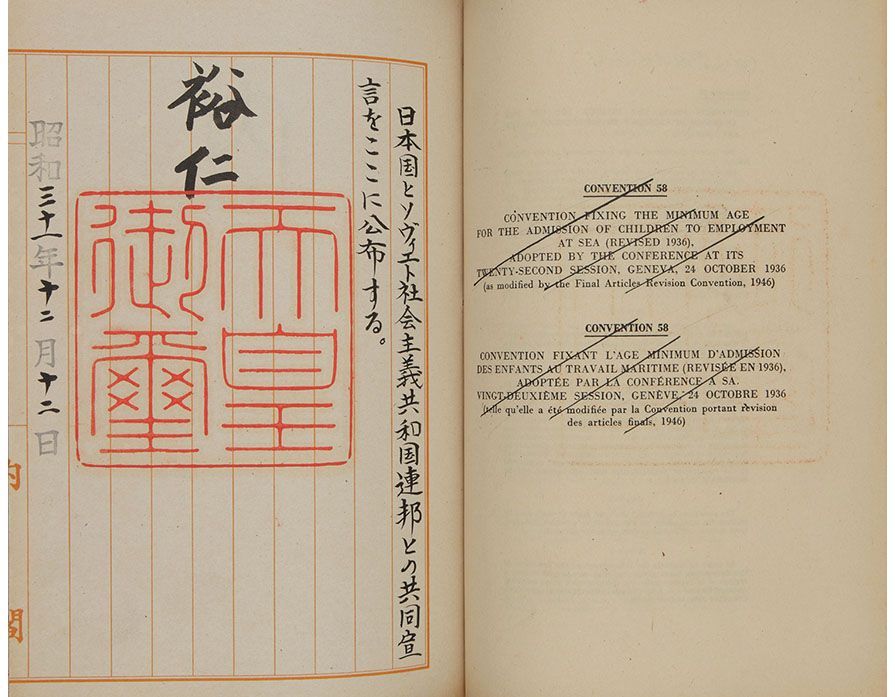 日本国とソヴィエト社会主義共和国連邦との共同宣
言をここに公布する。
裕仁
天皇
御璽
昭和三十一年十二月十二日
内閣
CONVENTION 58
CONVENTION FIXING THE MINIMUM AGE
FOR THE ADMISSION OF CHILDREN TO EMPLOYMENT
AT SEA (REVISED 1936),
ADOPTED BY THE CONFERENCE AT ITS
TWENTY-SECOND SESSION, GENEVA, 24 OCTOBER 1936
(as modified by the Final Articles Revision Convention, 1946)
CONVENTION 58
CONVENTION FIXANT L'AGE MINIMUM D'ADMISSION
DES ENFANTS AU TRAVAIL MARITIME (REVISÉE EN 1936),
ADOPTÉE PAR LA CONFÉRENCE A SA.
VINGT-DEUXIÈME SESSION, GENÈVE, 24 OCTOBRE 1936
(telle qu'elle a été modifiée par la Convention portant revision
des articles finals, 1946)